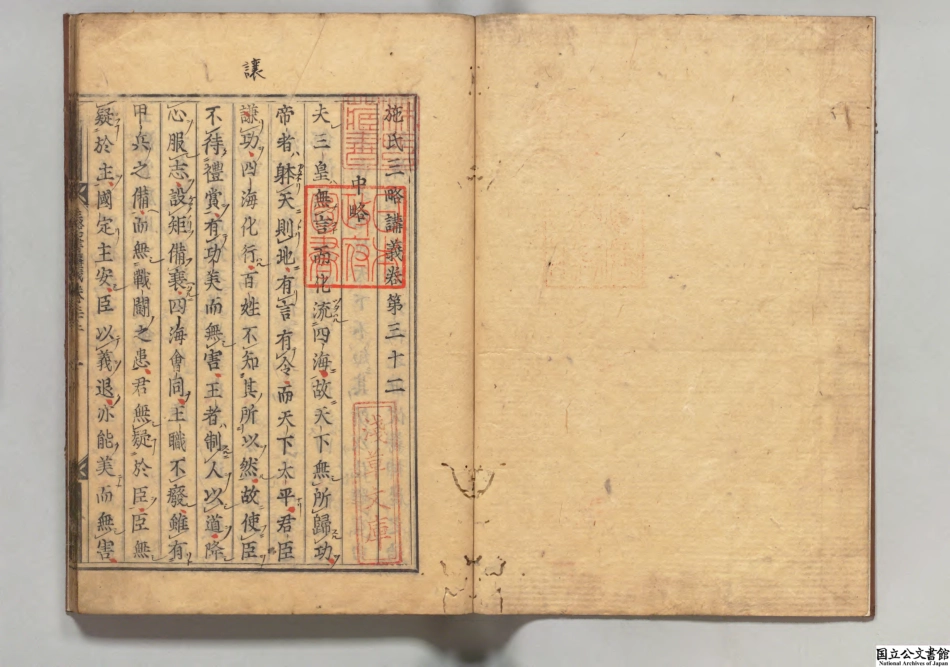 讓
施氏三略講義卷第三十二
中略
夫三皇無言而化流四海故天下無所歸功
帝者躰天則地有言有令而天下太平君臣
讓功四海化行百姓不知其所以然故使臣
不待禮賞有功美而無害王者制人以道降
心服志設矩備衰四海會同王職不廢雖有
甲兵之備而無戰鬪之患君無疑於臣臣無
疑於主國定主安臣以義退亦能美而無害
淺草文庫
日本
政府
圖書
国立公文書館
National Archives of Japan